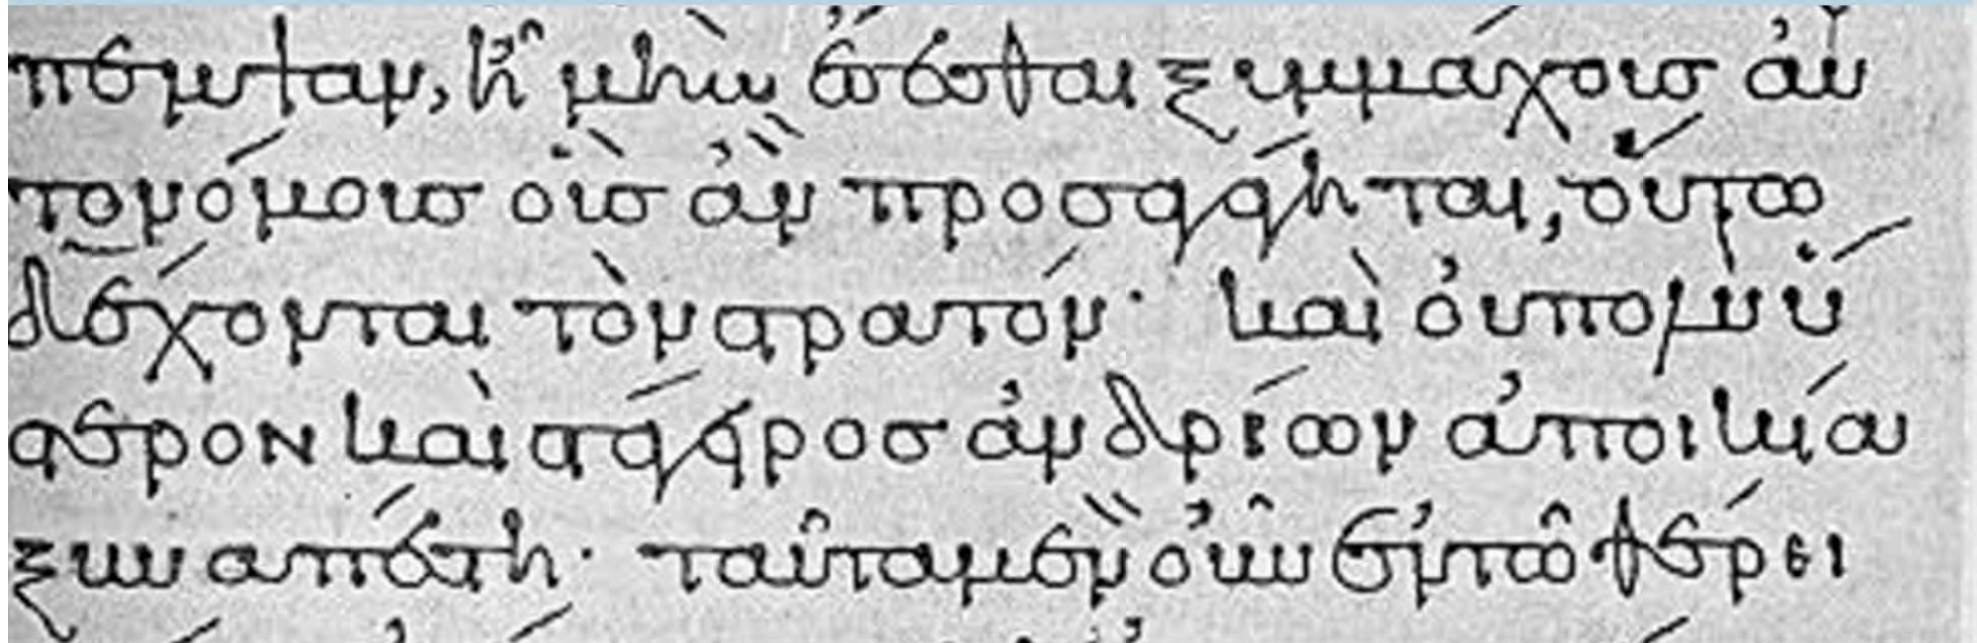 πεμψαν, ἦ μὴν ἔσεσθαι ξυμμάχουσ αὐ
τονόμουσ οὓσ ἂν προσαγάγηται, οὕτω
δέχονται τὸν στρατόν· καὶ οὐ πολὺ ὕ
στερον καὶ στάγειροσ ἀνδρίων ἀποικία
ξυναπέστη· ταῦτα μὲν οὖν ἐν τῶ θέρει